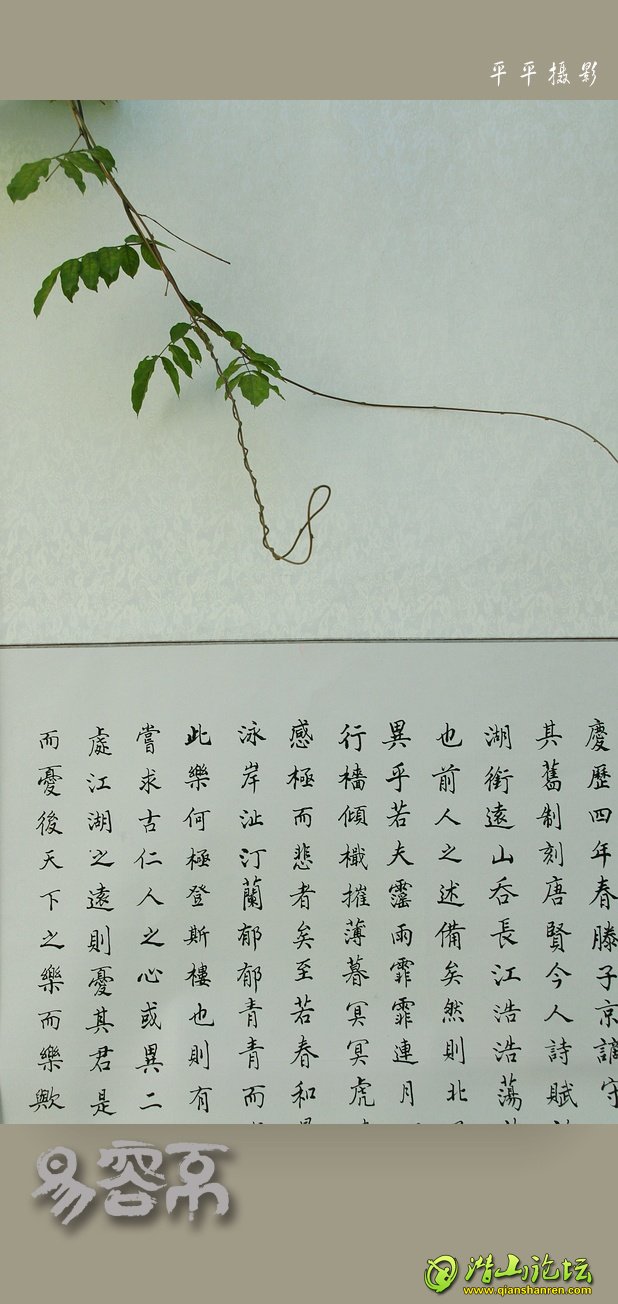 平平摄影
慶歷四年春滕子京謫守
其舊制刻唐賢今人詩賦
湖銜遠山吞長江浩浩蕩
也前人之述備矣然則北
異乎若夫霪雨霏霏連月
行檣傾檝摧薄暮冥冥虎
感極而悲者矣至若春和
泳岸沚汀蘭郁郁青青而
此樂何極登斯樓也則有
嘗求古仁人之心或異二
處江湖之遠則憂其君是
而憂後天下之樂而樂歟
易容
潜山论坛
www.qianshanren.com